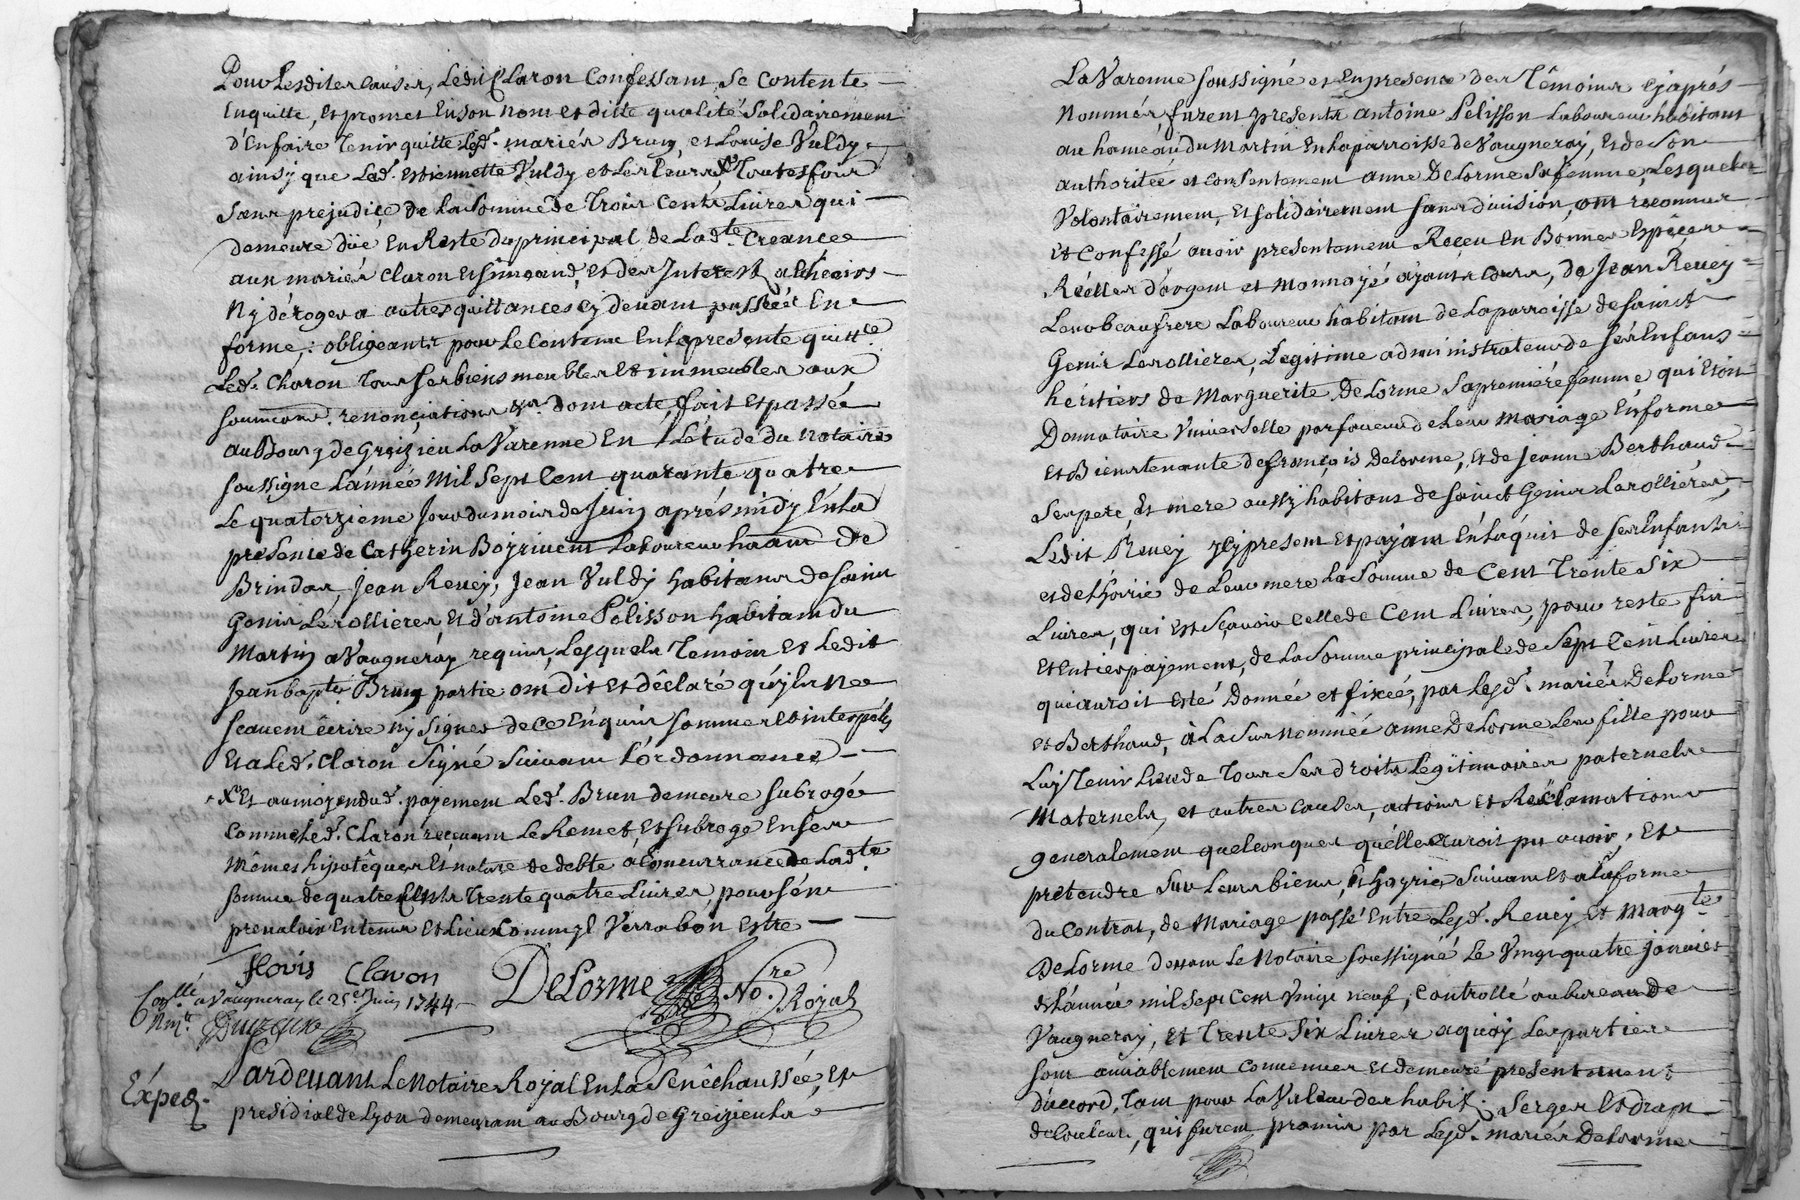 Pour Lesdites causes, Ledit Claron Confessant, se Contente
Enquitte, et promet En son nom et ditte qualité solidairement
d'En faire Tenir quitte Lesd. mariés Brun, et Louise Vuldy
ainsy que Lad. Estiennette Vuldy et Les Leurs, X Toutesfois
sans prejudice de la somme de Trois Cents Livres qui
demeure düe En Reste du principal de Ladte. Creance
aux mariés Claron et et des Interest
Ny déroger a autres quittances cy devant passées En
forme, : obligeants pour Le Contenu En La presente quittce.
Led. Claron Tous ses biens meubles Et immeubles aux
renonciations &a. dont acte, fait et passé
au Bourg de Greizieu La Varenne En L'étude du Notaire
soussigné L'année Mil sept Cent quarante quatre
Le quatorzieme Jour du mois de Juin aprés midy En La
presence de Catherin Boyrivent Laboureur haant de
Brindas, Jean Revey, Jean Vuldy habitans de saint
Genis Lérollieres Et d'antoine Pélisson habitant du
Martin a Vaugneray requis, Lesquels Temoins Et Ledit
Jean bapte. Brun partie ont dit et déclaré qu'ils ne
scavent écrire ny signer de ce Enquis sommés Et interpélés
Et a Led. Claron Signé Suivant L'ordonnance
X Et au moyen dud. payement Led. Brun demeure subrogé
comme Led. Claron recevant Le Remet, Et subroge En ses
mêmes hipotêques Et nature de debte a Concurrance de Ladte.
somme de quatre Cents Trente quatre Livres, pour s'en
prevaloir En tems Et Lieux Comme il Verra bon Estre
Claron
DeLorme Nore. Royal
Conllé. a Vaugneray le 25e. Juin 1744
Expéd.
Pardevant Le Notaire Royal En La Sénéchaussée, et
presidial de Lyon demeurant au Bourg de Greizieu La
La Varenne soussigné et En presence des Témoins cy aprés
Nommés, furent presents antoine Pélisson Laboureur habitant
au hameau du Martin En La parroisse de Vaugneray, Et de son
authoritée et consentement anne DeLorme sa femme, Lesquels
Volontairement, Et solidairement sans division, ont reconnu
Et Confessé avoir presentement Reçeu En Bonnes Espèces
Réelles d'argent et Monnoyé ayants cours, de Jean Revey
Leur beaufrere Laboureur habitant de La parroisse de sainct
Genis Lerollieres, Légitime administrateur de ses Enfans
héritiers de Marguerite DeLorme sa premiére femme qui Etoit
Donnataire Universelle par faveur de Leur Mariage En forme
et Bientenante de françois DeLorme, et de Jeanne Berthaud
ses pere, Et mere aussy habitans de sainct Genis Lerollieres,
Ledit Revey icy present et payant En L'aquit de ses Enfants
et de L'hoirie de Leur mere La somme de Cent Trente six
Livres, qui Est Sçavoir Celle de Cent Livres, pour reste fin
Et Entier payement, de La somme principale de sept Cent Livres
qui auroit Esté Donnée et fixée, par Lesd. mariés DeLorme
et Berthaud, à La sus nommée anne DeLorme Leur fille pour
Luy Tenir Lieu de Tous ses droits Légitimaires paternels
Maternels, et autres causes, actions et Reclamations
generalement quelconques qu'elle auroit pu avoir, Et
pretendre sur Leurs biens, Et hoyries suivant Et a La forme
du Contrat, de Mariage passé Entre Lesd. Revey Et Margte.
DeLorme devant Le Notaire soussigné Le Vingt quatre janvier
de L'année mil sept Cent Vingt neuf, Controllé au bureau de
Vaugneray, et Trente six Livres a quoy Les parties
sont amiablement Convenues et demeuré presentement
d'accord, Tant pour La Valeur des habits, Serges Et drap
de Couleur, qui furent promis par Lesd. mariés DeLorme